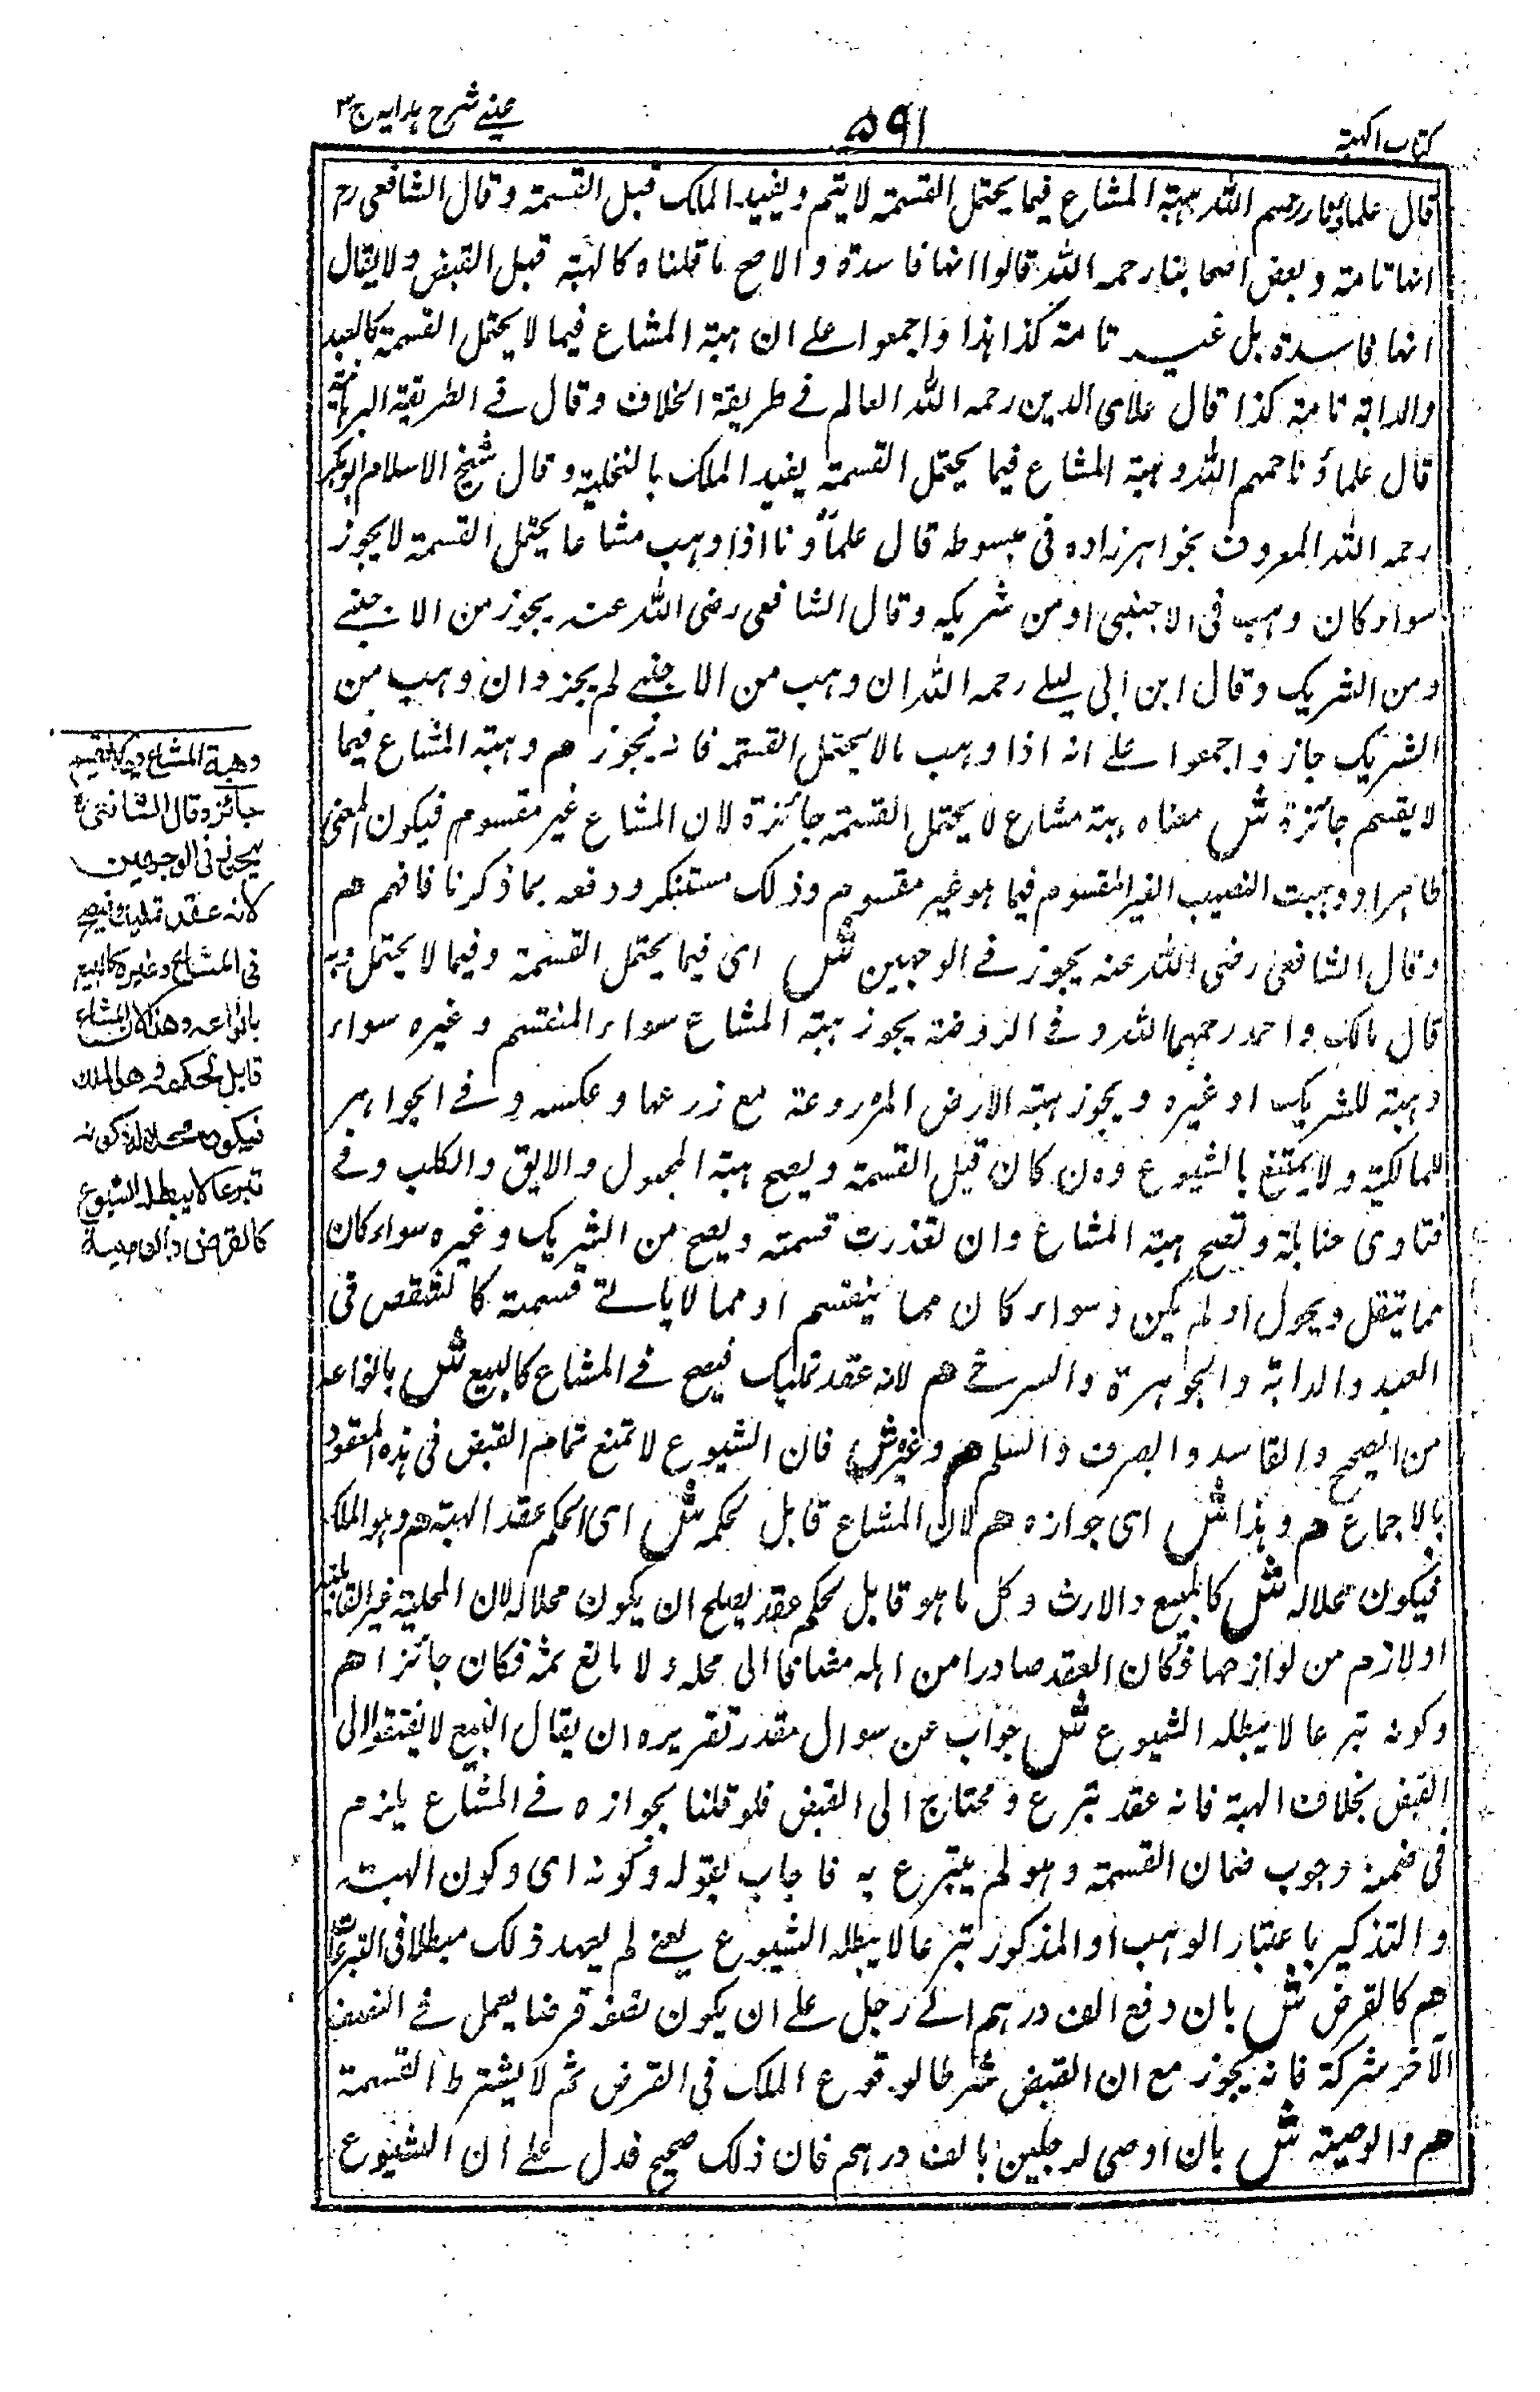 كتاب الهبة
٥٩١
عينے شرح ہدايہ ج٣
قال علماؤنا رحمهم الله هبة المشاع فيما يحتمل القسمة لا يتم ويفيد الملك قبل القسمة وقال الشافعی رح
انها تامة وبعض اصحابنا رحمه الله قالوا انها فاسدة والاصح ما قلناه كالهبة قبل القبض ولا يقال
انها فاسدة بل غير تامة كذا هذا واجمعوا علے ان هبة المشاع فيما لا يحتمل القسمة كالعبد
والدابة تامة كذا قال علاى الدين رحمه الله العالم فے طريقة الخلاف وقال فے الطريقة البرهانية
قال علماؤنا رحمهم الله وهبة المشاع فيما يحتمل القسمة يفيد الملك بالتخلية وقال شيخ الاسلام ابوبكر
رحمه الله المعروف بخواهر زاده فى مبسوطه قال علماؤنا اذا وهب مشاعا يحتمل القسمة لا يجوز
سواء كان وهب فى الاجنبى او من شريكه وقال الشافعى رضى الله عنه يجوز من الاجنبے
ومن الشريك وقال ابن ابى ليلے رحمه الله ان وهب من الاجنبے لم يجز وان وهب من
الشريك جاز واجمعوا علے انه اذا وهب مالا يحتمل القسمة فانه يجوز هم وهبة المشاع فيما
لا يقسم جائزة ش معناه هبة مشاع لا يحتمل القسمة جائزة لان المشاع غير مقسوم فيكون المعنى
ظاهرا ووهبت النصيب الغير المقسوم فيما هو غير مقسوم وذلك مستنكر ودفعه بما ذكرنا فافهم هم
وقال الشافعى رضى الله عنه يجوز فے الوجهين ش اى فيما يحتمل القسمة وفيما لا يحتمل وبه
قال مالك واحمد رحمهما الله وفے الروضة يجوز هبة المشاع سواء المنقسم وغيره سواء
وهبة للشريك او غيره ويجوز هبة الارض المزروعة مع زرعها وعكسه وفے الجواهر
للمالكية ولا يمتنع بالشيوع وان كان قبل القسمة ويصح هبة المجهول والابق والكلب وفے
فتاوى حنابلة وتصح هبة المشاع وان تعذرت قسمته ويصح من الشريك وغيره سواء كان
مما ينقل ويحول او لم يكن وسواء كان مما ينقسم او مما لا ياتے قسمته كالشقص فى
العبد والدابة والجوهرة والسرخے هم لانه عقد تمليك فيصح فے المشاع كالبيع ش بانواعه
من الصحيح والفاسد والصرف والسلم هم وغيره ش فان الشيوع لا تمنع تمام القبض فى هذه العقود
بالاجماع هم وهذا ش اى جوازه هم لان المشاع قابل لحكمه ش اى لحكم عقد الهبة هم وهو الملك
فيكون محلا له ش كالبيع والارث وكل ما هو قابل لحكم عقد يصلح ان يكون محلا له لان المحلية غير القابلية
او لازم من لوازمها فكان العقد صادرا من اهله مضافا الى محله ولا مانع ثمة فكان جائزا هم
وكونه تبرعا لا يبطله الشيوع ش جواب عن سوال مقدر تقريره ان يقال البيع لا يفتقر الى
القبض بخلاف الهبة فانه عقد تبرع ومحتاج الى القبض فلو قلنا بجوازه فے المشاع يلزم
فى ضمنه وجوب ضمان القسمة وهو لم يتبرع به فاجاب بقوله وكونه اى وكون الهبة
والتذكير باعتبار الوهب او المذكور تبرعا لا يبطله الشيوع يعنے لم يعهد ذلك مبطلا فى التبرعات
هم كالقرض ش بان دفع الف درهم الے رجل علے ان يكون نصفه قرضا يعمل فے النصف
الآخر شركة فانه يجوز مع ان القبض شرط الوقوع الملك فى القرض ثم لا يشترط القسمة
هم والوصية ش بان اوصى لرجلين بالف درهم فان ذلك صحيح فدل علے ان الشيوع
وهبة المشاع فيما لا يقسم
جائز وقال الشافعىؒ
يجوز فى الوجهين
لانه عقد تمليك فيصح
فى المشاع وغيره كالبيع
بانواعه وهذا لان المشاع
قابل لحكمه وهو الملك
فيكون محلا له وكونه
تبرعا لا يبطله الشيوع
كالقرض والوصية